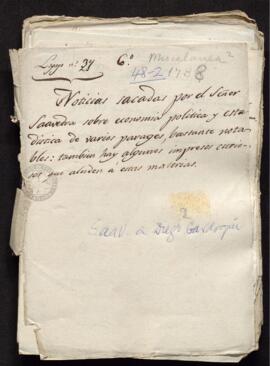 Legajo nº 27 6º Miscelanea 2
48-2 1788
Noticias sacadas por el Señor
Saavedra sobre economia politica y esta-
distica de varios parages, bastante nota-
bles: tambien hay algunos impresos curio-
sos que aluden a estas materias.
2
Saav. a Diego Gardoqui